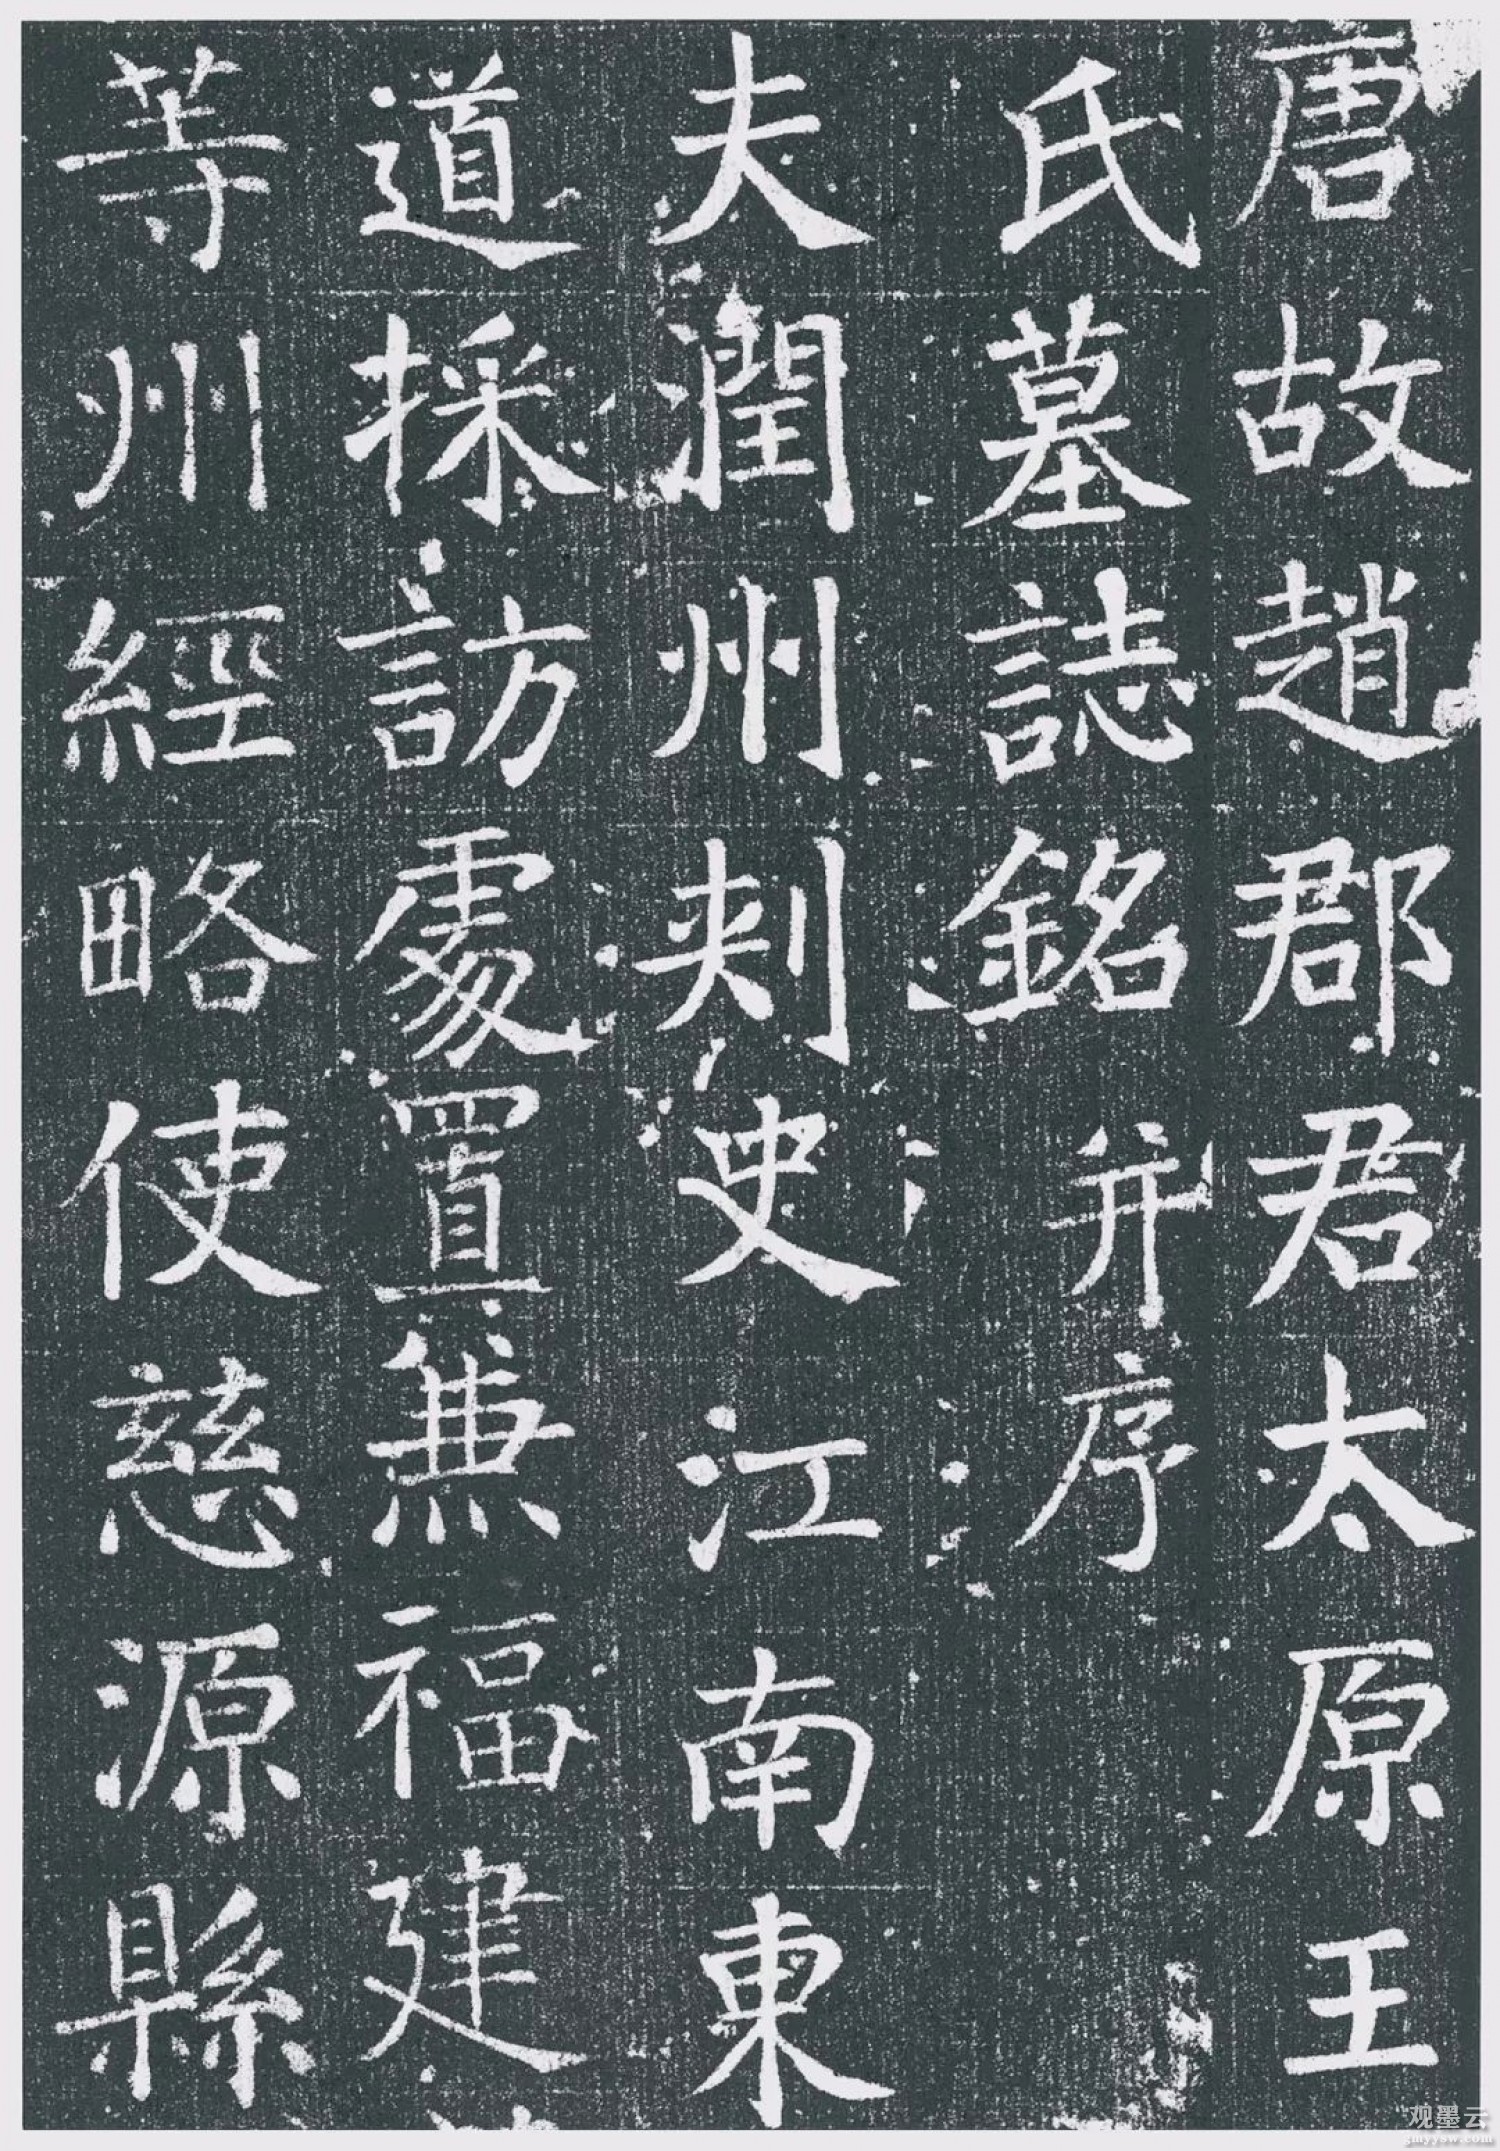 唐故趙郡君太原王
氏墓誌銘并序
夫潤州刾史江南東
道採訪處置兼福建
等州經略使慈源縣
观墨云
gmyysw.com